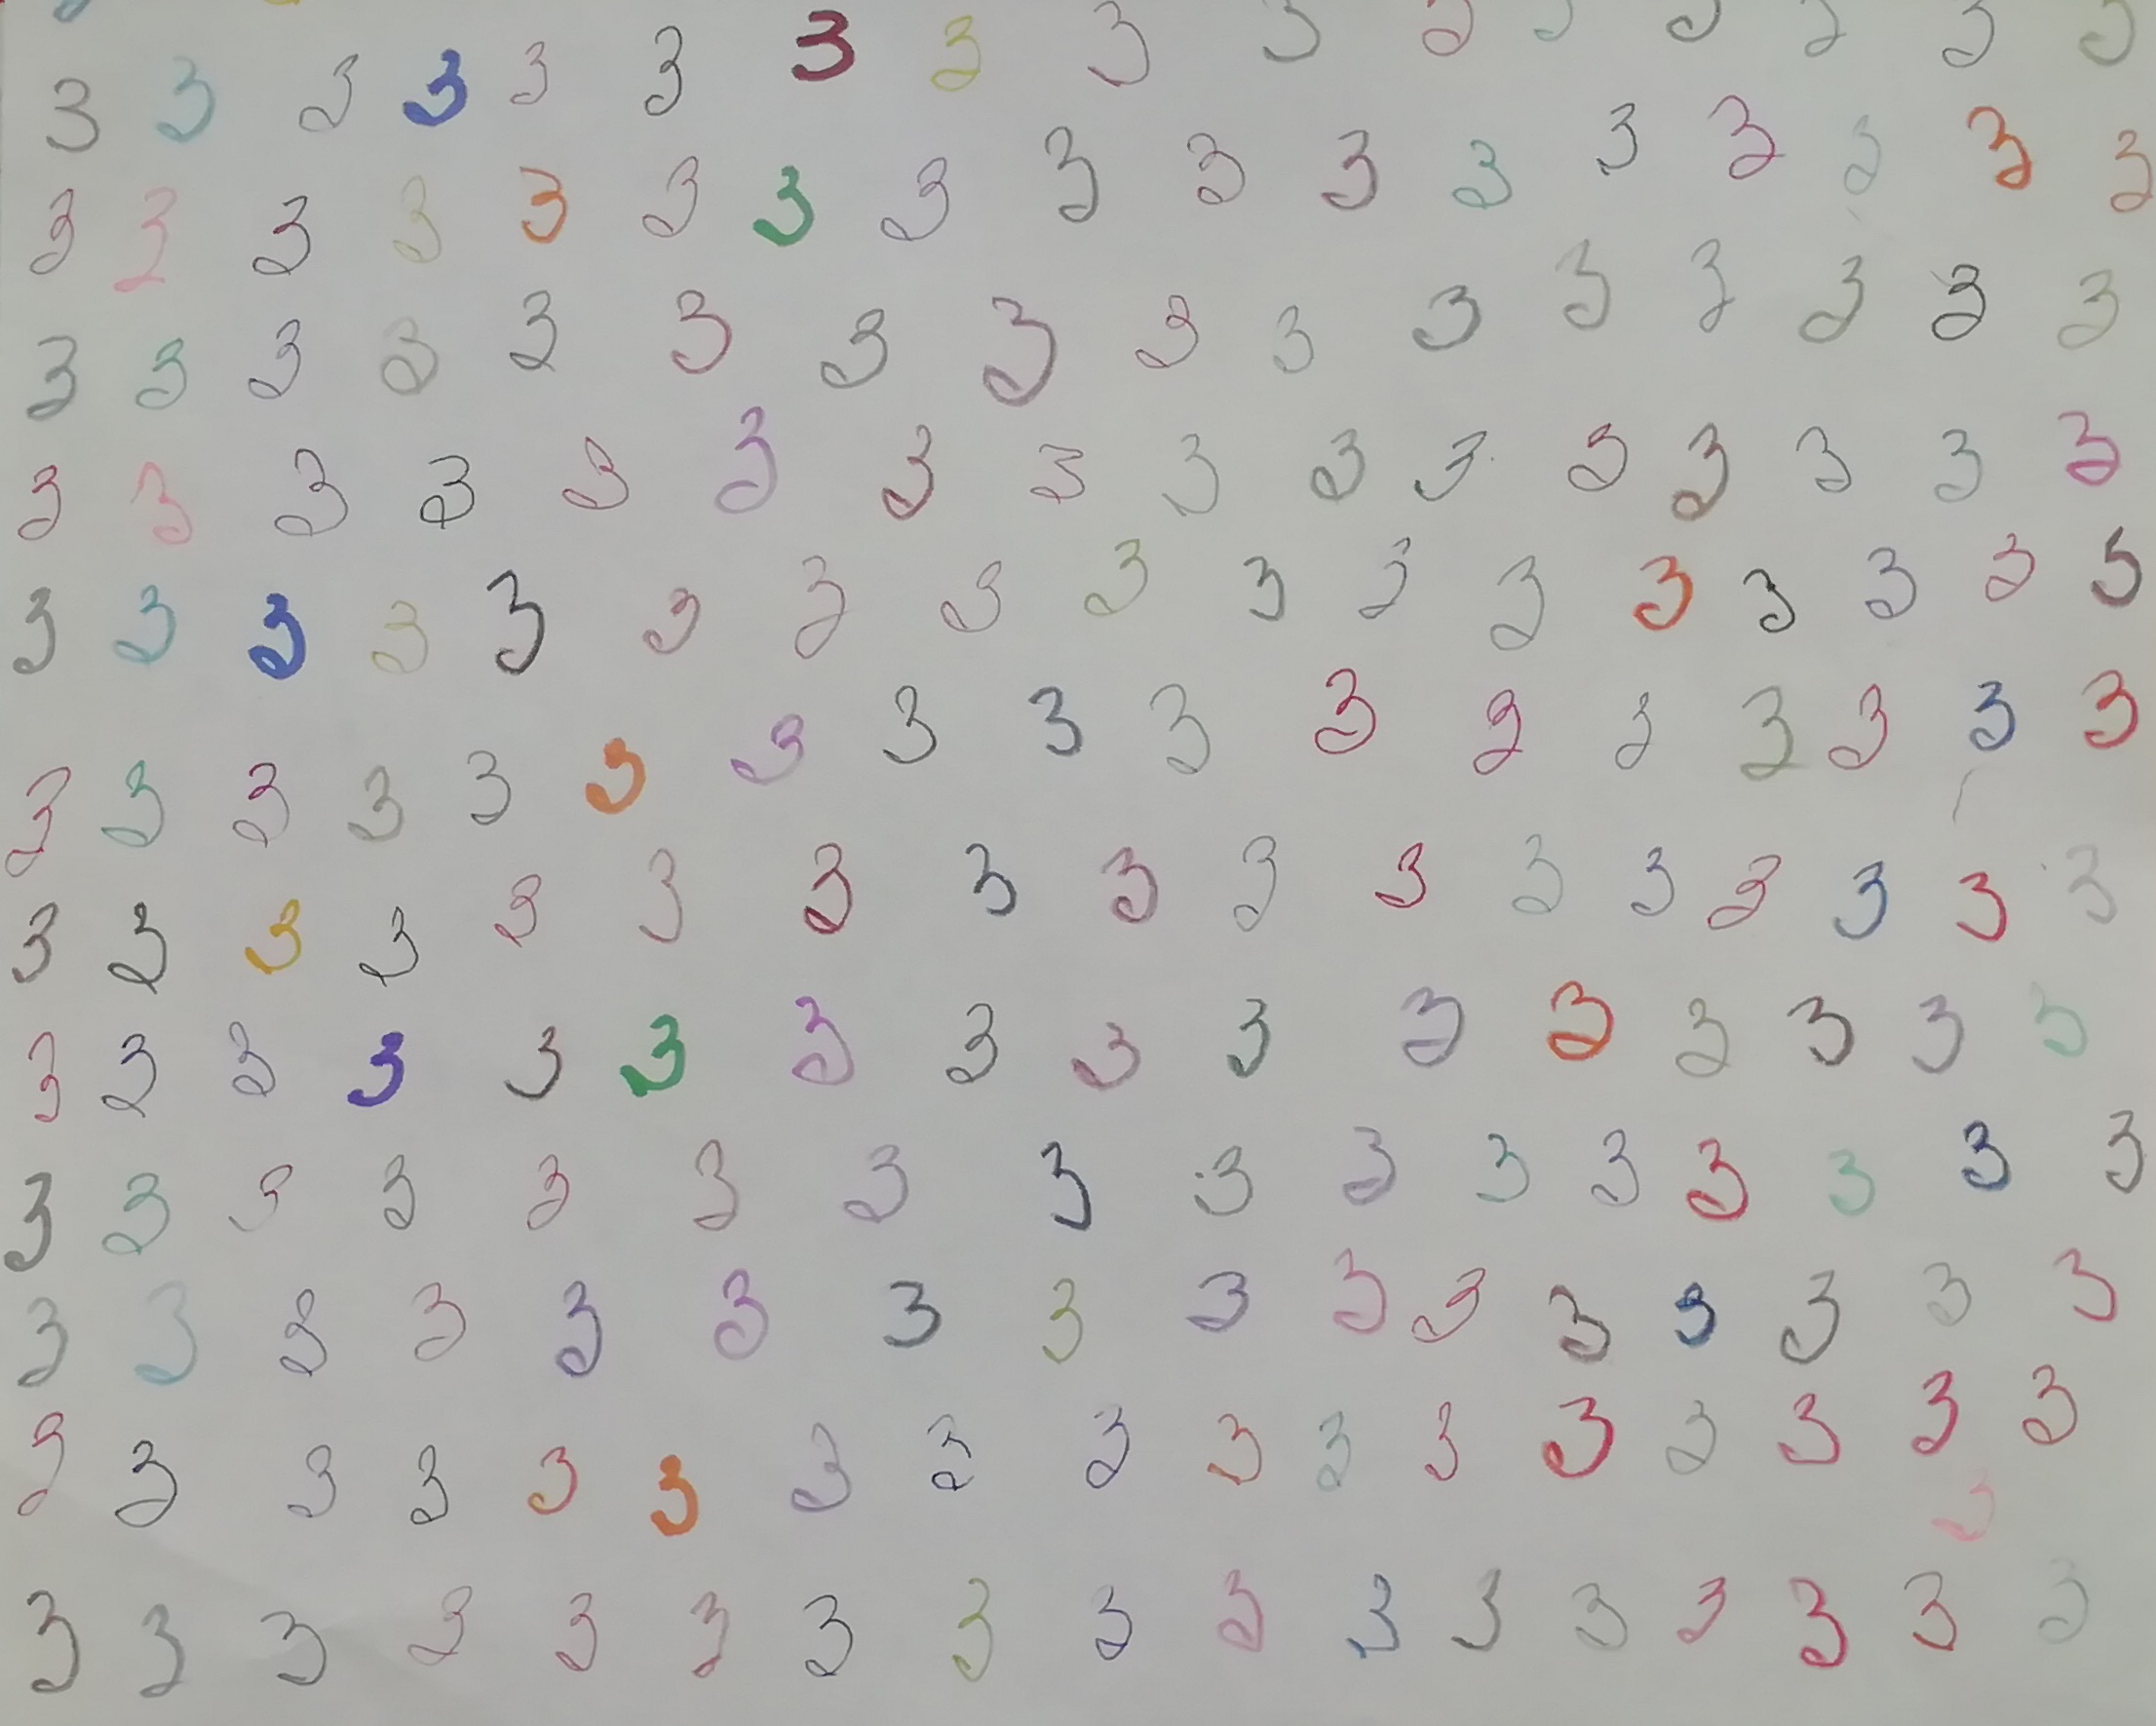 3 3 3 3 3 3 3 3 3 3 3 3 3 3 3 3
3 3 3 3 3 3 3 3 3 3 3 3 3 3 3 3 3
3 3 3 3 3 3 3 3 3 3 3 3 3 3 3 3
3 3 3 3 3 3 3 3 3 3 3 3 3 3 3 3
3 3 3 3 3 3 3 3 3 3 3 3 3 3 3 3 3
3 3 3 3 3 3 3 3 3 3 3 3 3 3 3 3 3
3 3 3 3 3 3 3 3 3 3 3 3 3 3 3 3 3
3 3 3 3 3 3 3 3 3 3 3 3 3 3 3 3
3 3 3 3 3 3 3 3 3 3 3 3 3 3 3 3
3 3 3 3 3 3 3 3 3 3 3 3 3 3 3 3
3 3 3 3 3 3 3 3 3 3 3 3 3 3 3 3 3
3
3 3 3 3 3 3 3 3 3 3 3 3 3 3 3 3 3